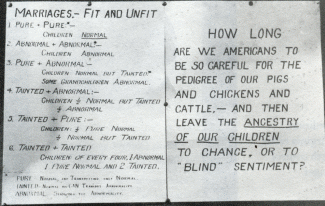 MARRIAGES - FIT AND UNFIT
1. PURE + PURE:-
CHILDREN NORMAL
2. ABNORMAL + ABNORMAL:-
CHILDREN ABNORMAL
3. PURE + ABNORMAL:-
CHILDREN NORMAL BUT TAINTED
SOME GRANDCHILDREN ABNORMAL
4. TAINTED + ABNORMAL:-
CHILDREN ½ NORMAL BUT TAINTED
½ ABNORMAL
5. TAINTED + PURE:-
CHILDREN: ½ PURE NORMAL
½ NORMAL BUT TAINTED
6. TAINTED + TAINTED
CHILDREN OF EVERY FOUR, 1 ABNORMAL
1 PURE NORMAL AND 2 TAINTED.
PURE NORMAL
TAINTED NORMAL
ABNORMAL
HOW LONG
ARE WE AMERICANS TO
BE SO CAREFUL FOR THE
PEDIGREE OF OUR PIGS
AND CHICKENS AND
CATTLE, - AND THEN
LEAVE THE ANCESTRY
OF OUR CHILDREN
TO CHANCE, OR TO
"BLIND" SENTIMENT?